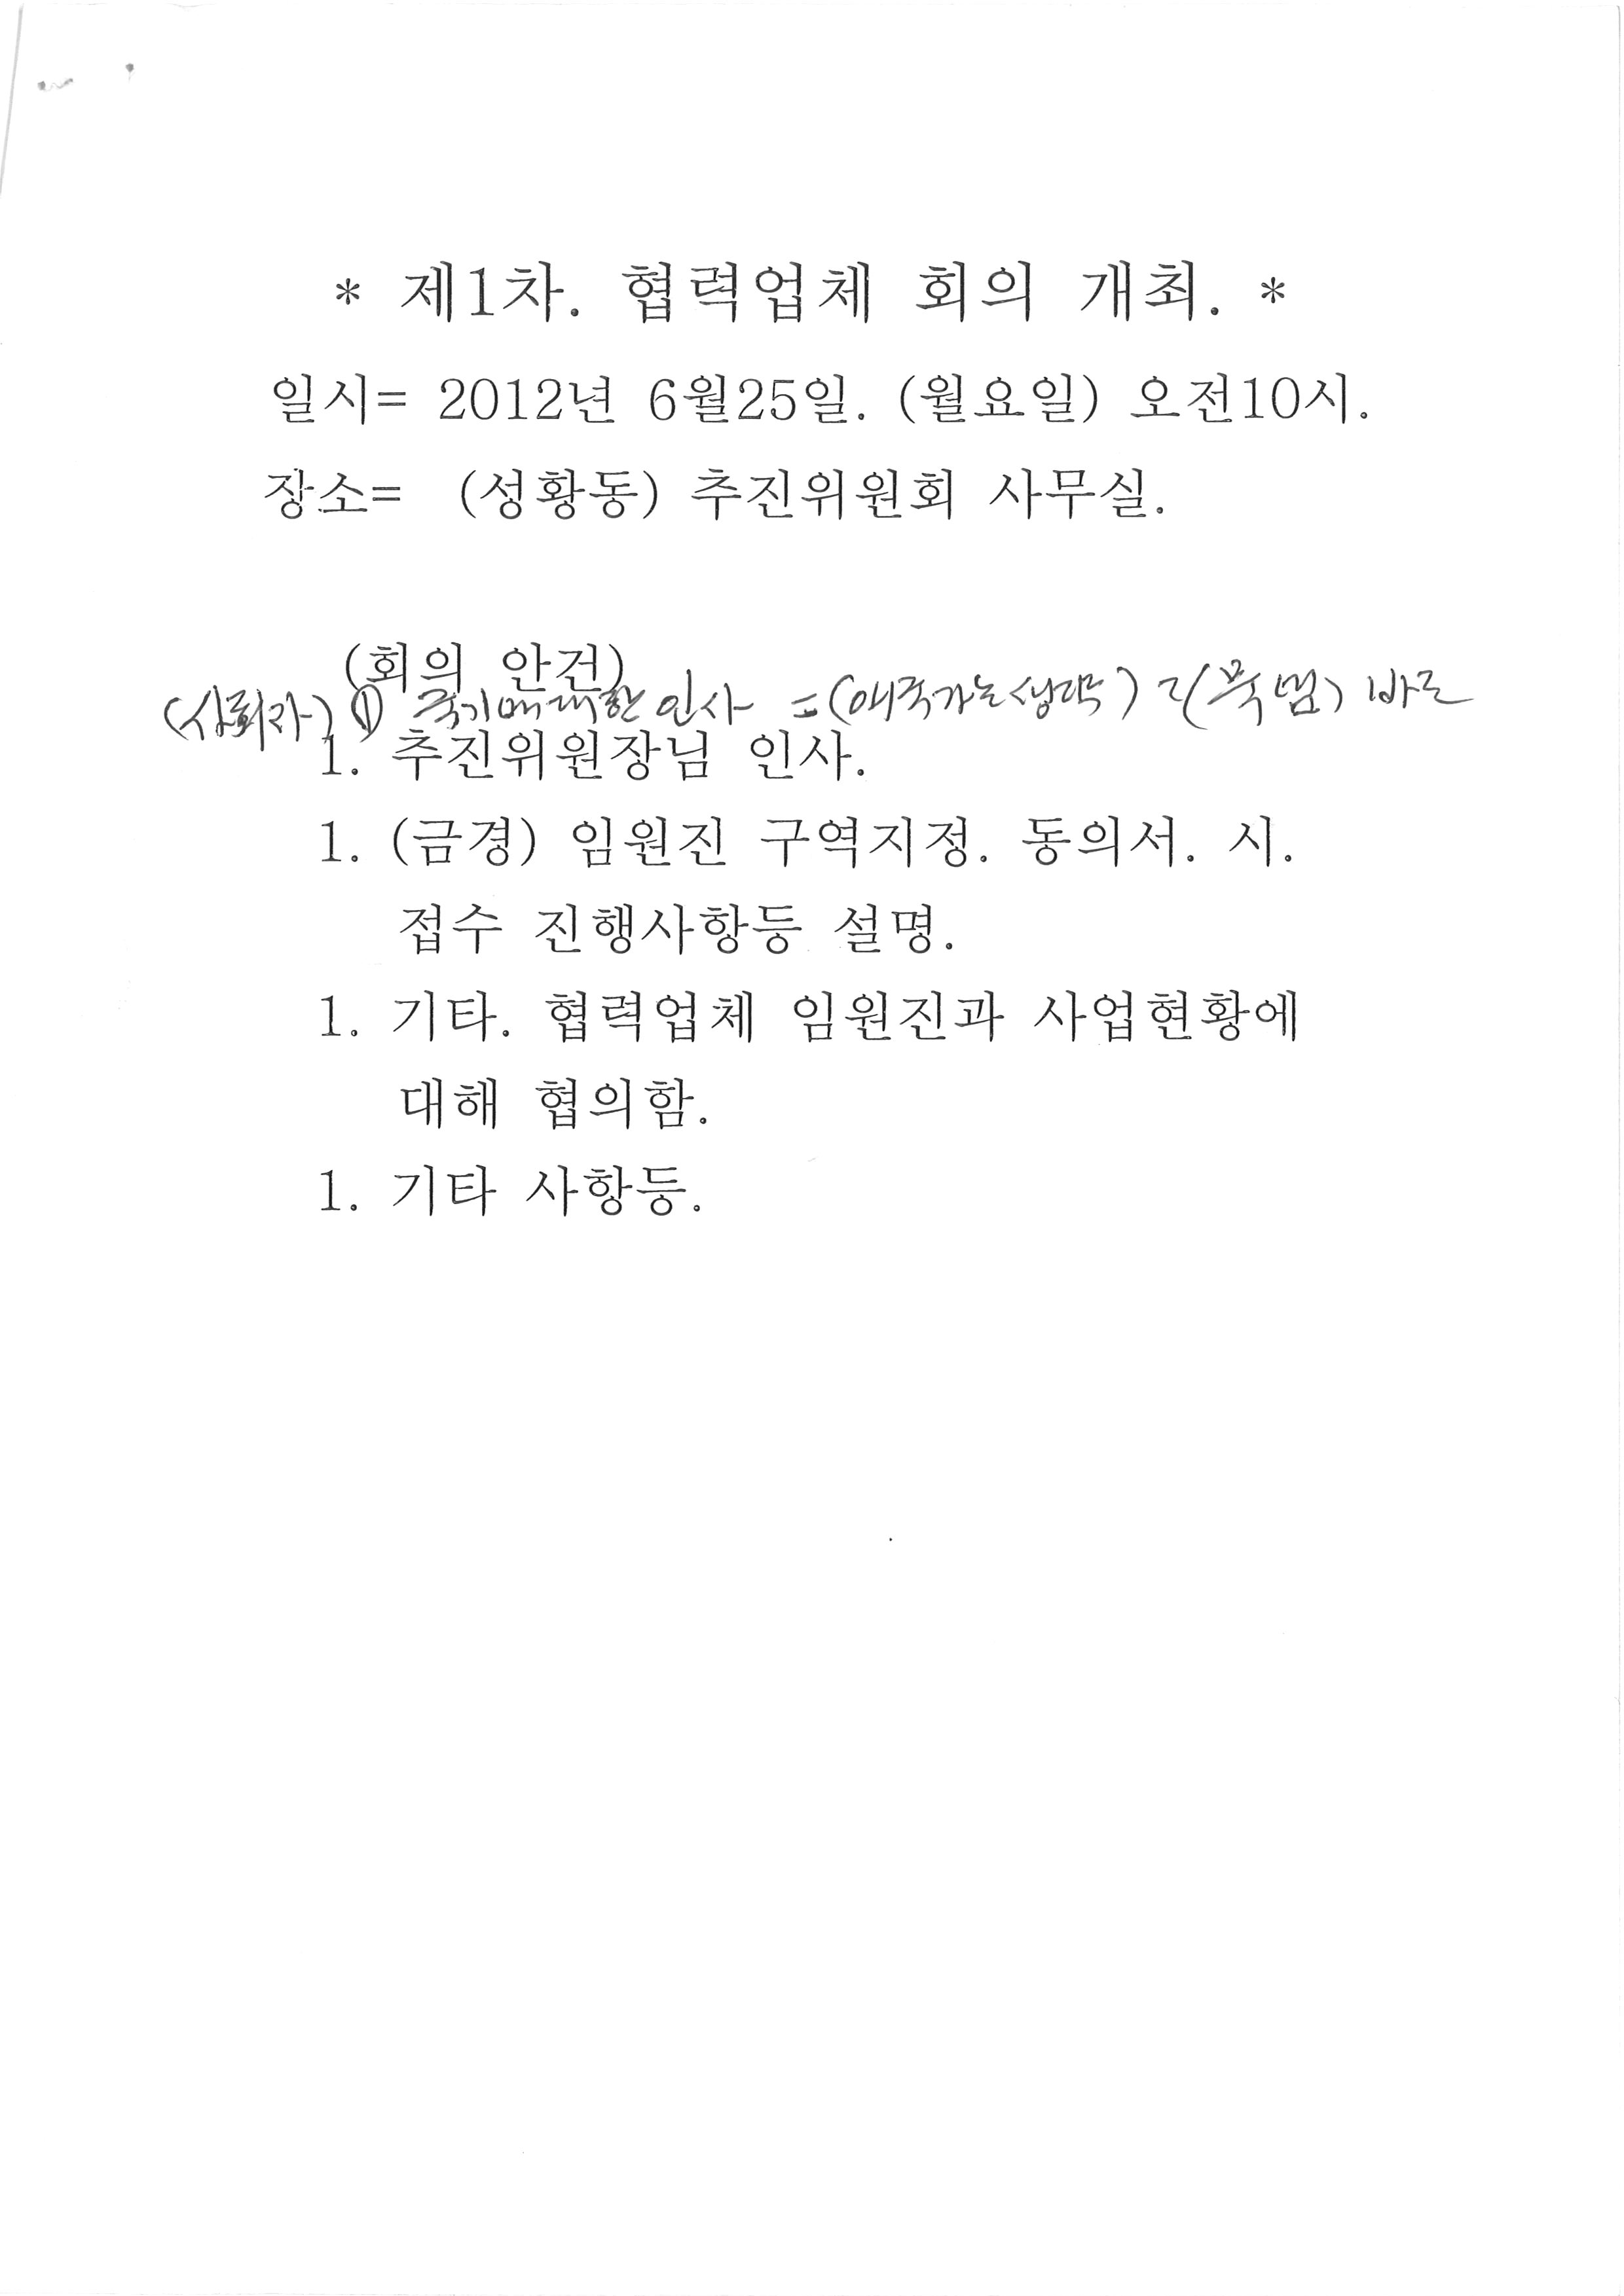 * 제1차. 협력업체 회의 개최. *
일시= 2012년 6월25일. (월요일) 오전10시.
장소= (성황동) 추진위원회 사무실.
(회의 안건)
(사회자) ① 국기에대한 인사 = (애국가는 생략) (묵념) 바로
1. 추진위원장님 인사.
1. (금경) 임원진 구역지정. 동의서. 시.
접수 진행사항등 설명.
1. 기타. 협력업체 임원진과 사업현황에
대해 협의함.
1. 기타 사항등.